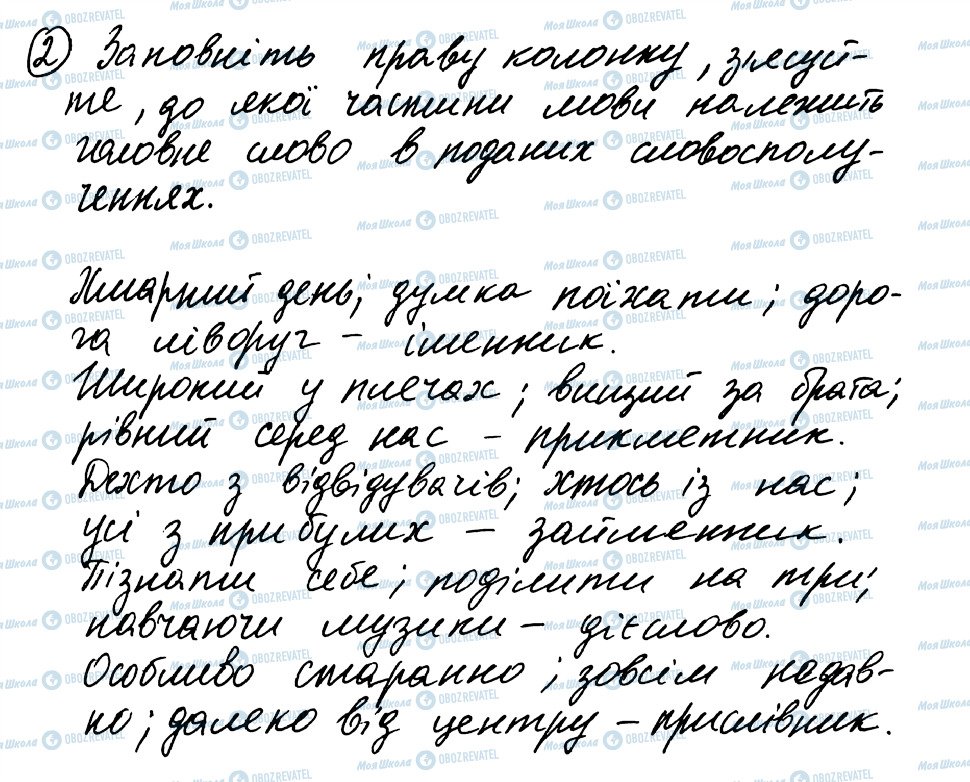 2) Заповніть праву колонку, з'ясуй-
те, до якої частини мови належить
головне слово в поданих словосполу-
ченнях.
Хмарний день; думка поїхати; доро-
га ліворуч – іменник.
Широкий у плечах; вищий за брата;
рівний серед нас – прикметник.
Дехто з відвідувачів; хтось із нас;
усі з прибулих – займенник.
Пізнати себе; поділити на три;
навчаючи музики – дієслово.
Особливо старанно; зовсім недав-
но; далеко від центру – прислівник.